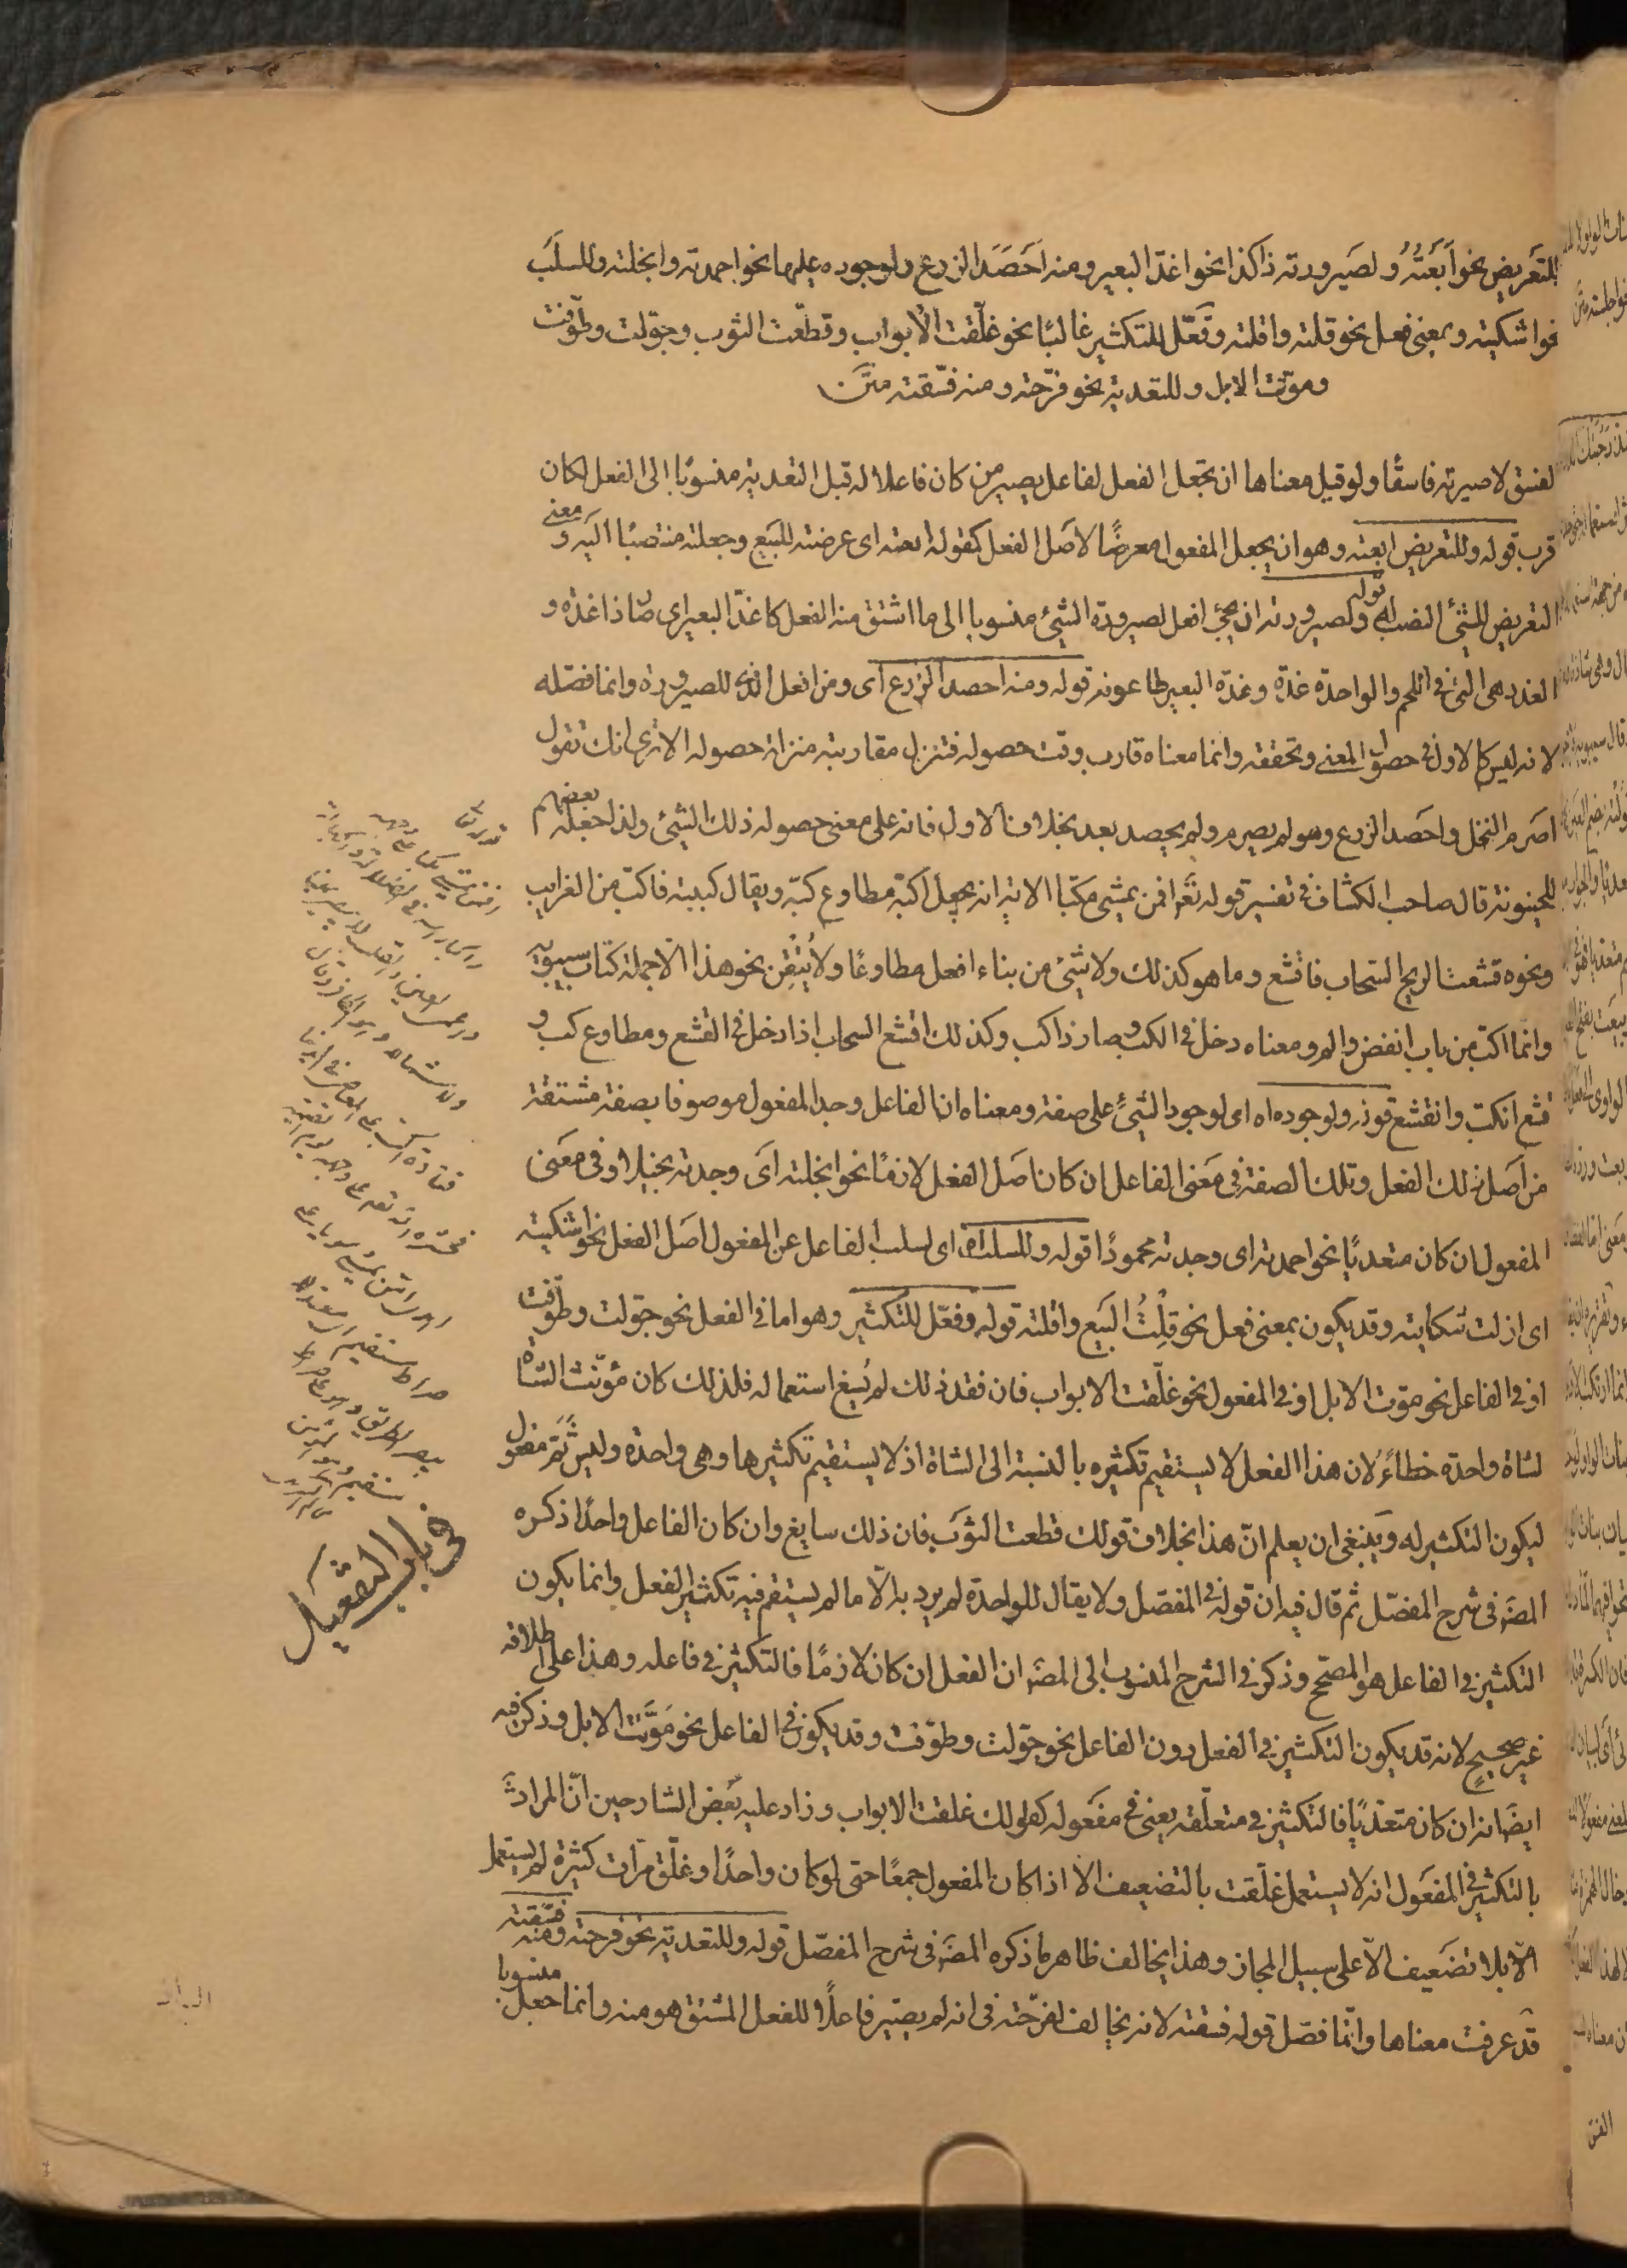 للتعريض نحو ابعته ولصيرورته ذا كذا نحو اغد البعير ومنه احصد الزرع ولوجوده عليها نحو احمدته وابخلته وللسلب
نحو اشكيته وبمعنى فعل نحو قلته واقلته وفعّل للتكثير غالبًا نحو غلّقت الابواب وقطّعت الثوب وجوّلت وطوّفت
وموّتت الابل وللتعدية نحو فرّحته ومنه فسّقته
لفسق لا صيرته فاسقًا ولو قيل معناها ان تجعل الفعل لفاعل يصير من كان فاعلا له قبل التعدية منسوبًا الى الفعل لكان
قرب قوله وللتعريض ابعته وهو ان يجعل المفعول معرضًا لاصل الفعل كقوله ابعته اى عرضته للبيع وجعلته منتصبًا اليه ومعنى
التعريض للشئ النصب له قوله ولصيرورته ان يجئ افعل لصيرورة الشئ منسوبا الى ما اشتق منه الفعل كاغدّ البعير اى صار ذا غدة و
الغدد هى التى فى اللحم والواحدة غدّة وغدّة البعير طاعونه قوله ومنه احصد الزرع اى ومن افعل الذى للصيرورة وانما فصّله
لانه ليس كالاول فى حصول المعنى وتحققه وانما معناه قارب وقت حصوله فتنزل مقاربته منزلة حصوله الا ترى انك تقول
اصرم النخل واحصد الزرع وهو لم يصرم ولم يحصد بعد بخلاف الاول فانه على معنى حصوله ذلك الشئ ولذا جعله بعضهم
للحينونة قال صاحب الكشاف فى تفسير قوله تعَ افمن يمشى مكبّا الاية انه يجعل اكبّ مطاوع كبّه ويقال كببته فاكبّ من الغرايب
ونحوه قشعت الريح السحاب فاقشع وما هو كذلك ولا شئ من بناء افعل مطاوعًا ولا يُتْقِن نحو هذا الّا حملة كتاب سيبويه
وانما اكبّ من باب انفض والم ومعناه دخل فى الكب وصار ذا كب وكذلك اقشع السحاب اذا دخل فى القشع ومطاوع كب و
قشع انكب وانقشع قوله ولوجوده اه اى لوجود الشئ على صفة ومعناه ان الفاعل وجد المفعول موصوفا بصفة مشتقة
من اصل ذلك الفعل وتلك الصفة فى معنى الفاعل ان كان اصل الفعل لازمًا نحو ابخلته اى وجدته بخيلا وفى معنى
المفعول ان كان متعديًا نحو احمدته اى وجدته محمودًا قوله وللسلب اه اى لسلب الفاعل عن المفعول اصل الفعل نحو اشكيته
اى ازلت شكايته وقد يكون بمعنى فعل نحو قِلْتُ البيع واقلته قوله وفعّل للتكثير وهو اما فى الفعل نحو جوّلت وطوّفت
او فى الفاعل نحو موّتت الابل او فى المفعول نحو غلّقت الابواب فان فقد ذلك لم يُسغ استعماله فلذلك كان موّتت الشاة
لشاة واحدة خطاءً لان هذا الفعل لا يستقيم تكثيره بالنسبة الى الشاة اذ لا يستقيم تكثيرها وهى واحدة وليس ثمَّ مفعول
ليكون التكثير له وينبغى ان يعلم انّ هذا بخلاف قولك قطعت الثوب فان ذلك سايغ وان كان الفاعل واحدًا ذكره
المصَ فى شرح المفصّل ثم قال فيه ان قوله فى المفصّل ولا يقال للواحدة لم يرد به الّا ما لم يستقم فيه تكثير الفعل وانما يكون
التكثير فى الفاعل هو المصحّح وذكر فى الشرح المنسوب الى المصَ ان الفعل ان كان لازمًا فالتكثير فى فاعله وهذا على اطلاقه
غير صحيح لانه قد يكون التكثير فى الفعل دون الفاعل نحو جوّلت وطوّفت وقد يكون فى الفاعل نحو موّتت الابل وذكر فيه
ايضا انه ان كان متعدّيًا فالتكثير فى متعلّقه يعنى فى مفعوله كقولك غلقت الابواب وزاد عليه بعض الشارحين انّ المراد
بالتكثير فى المفعول انه لا يستعمل غلّقت بالتضعيف الا اذا كان المفعول جمعًا حتى لو كان واحدًا وغلّق مرّات كثيرة لم يستعمل
الّا بلا تضعيف الّا على سبيل المجاز وهذا يخالف ظاهر ما ذكره المصَ فى شرح المفصّل قوله وللتعدية نحو فرحته ومنه فسّقته
قد عرفت معناها وانّما فصّل قوله فسقته لانه يخالف لفرّحته فى انه لم يصيّر فاعلًا للفعل المشتق هو منه وانما جعل منسوبا
فى باب التفعيل